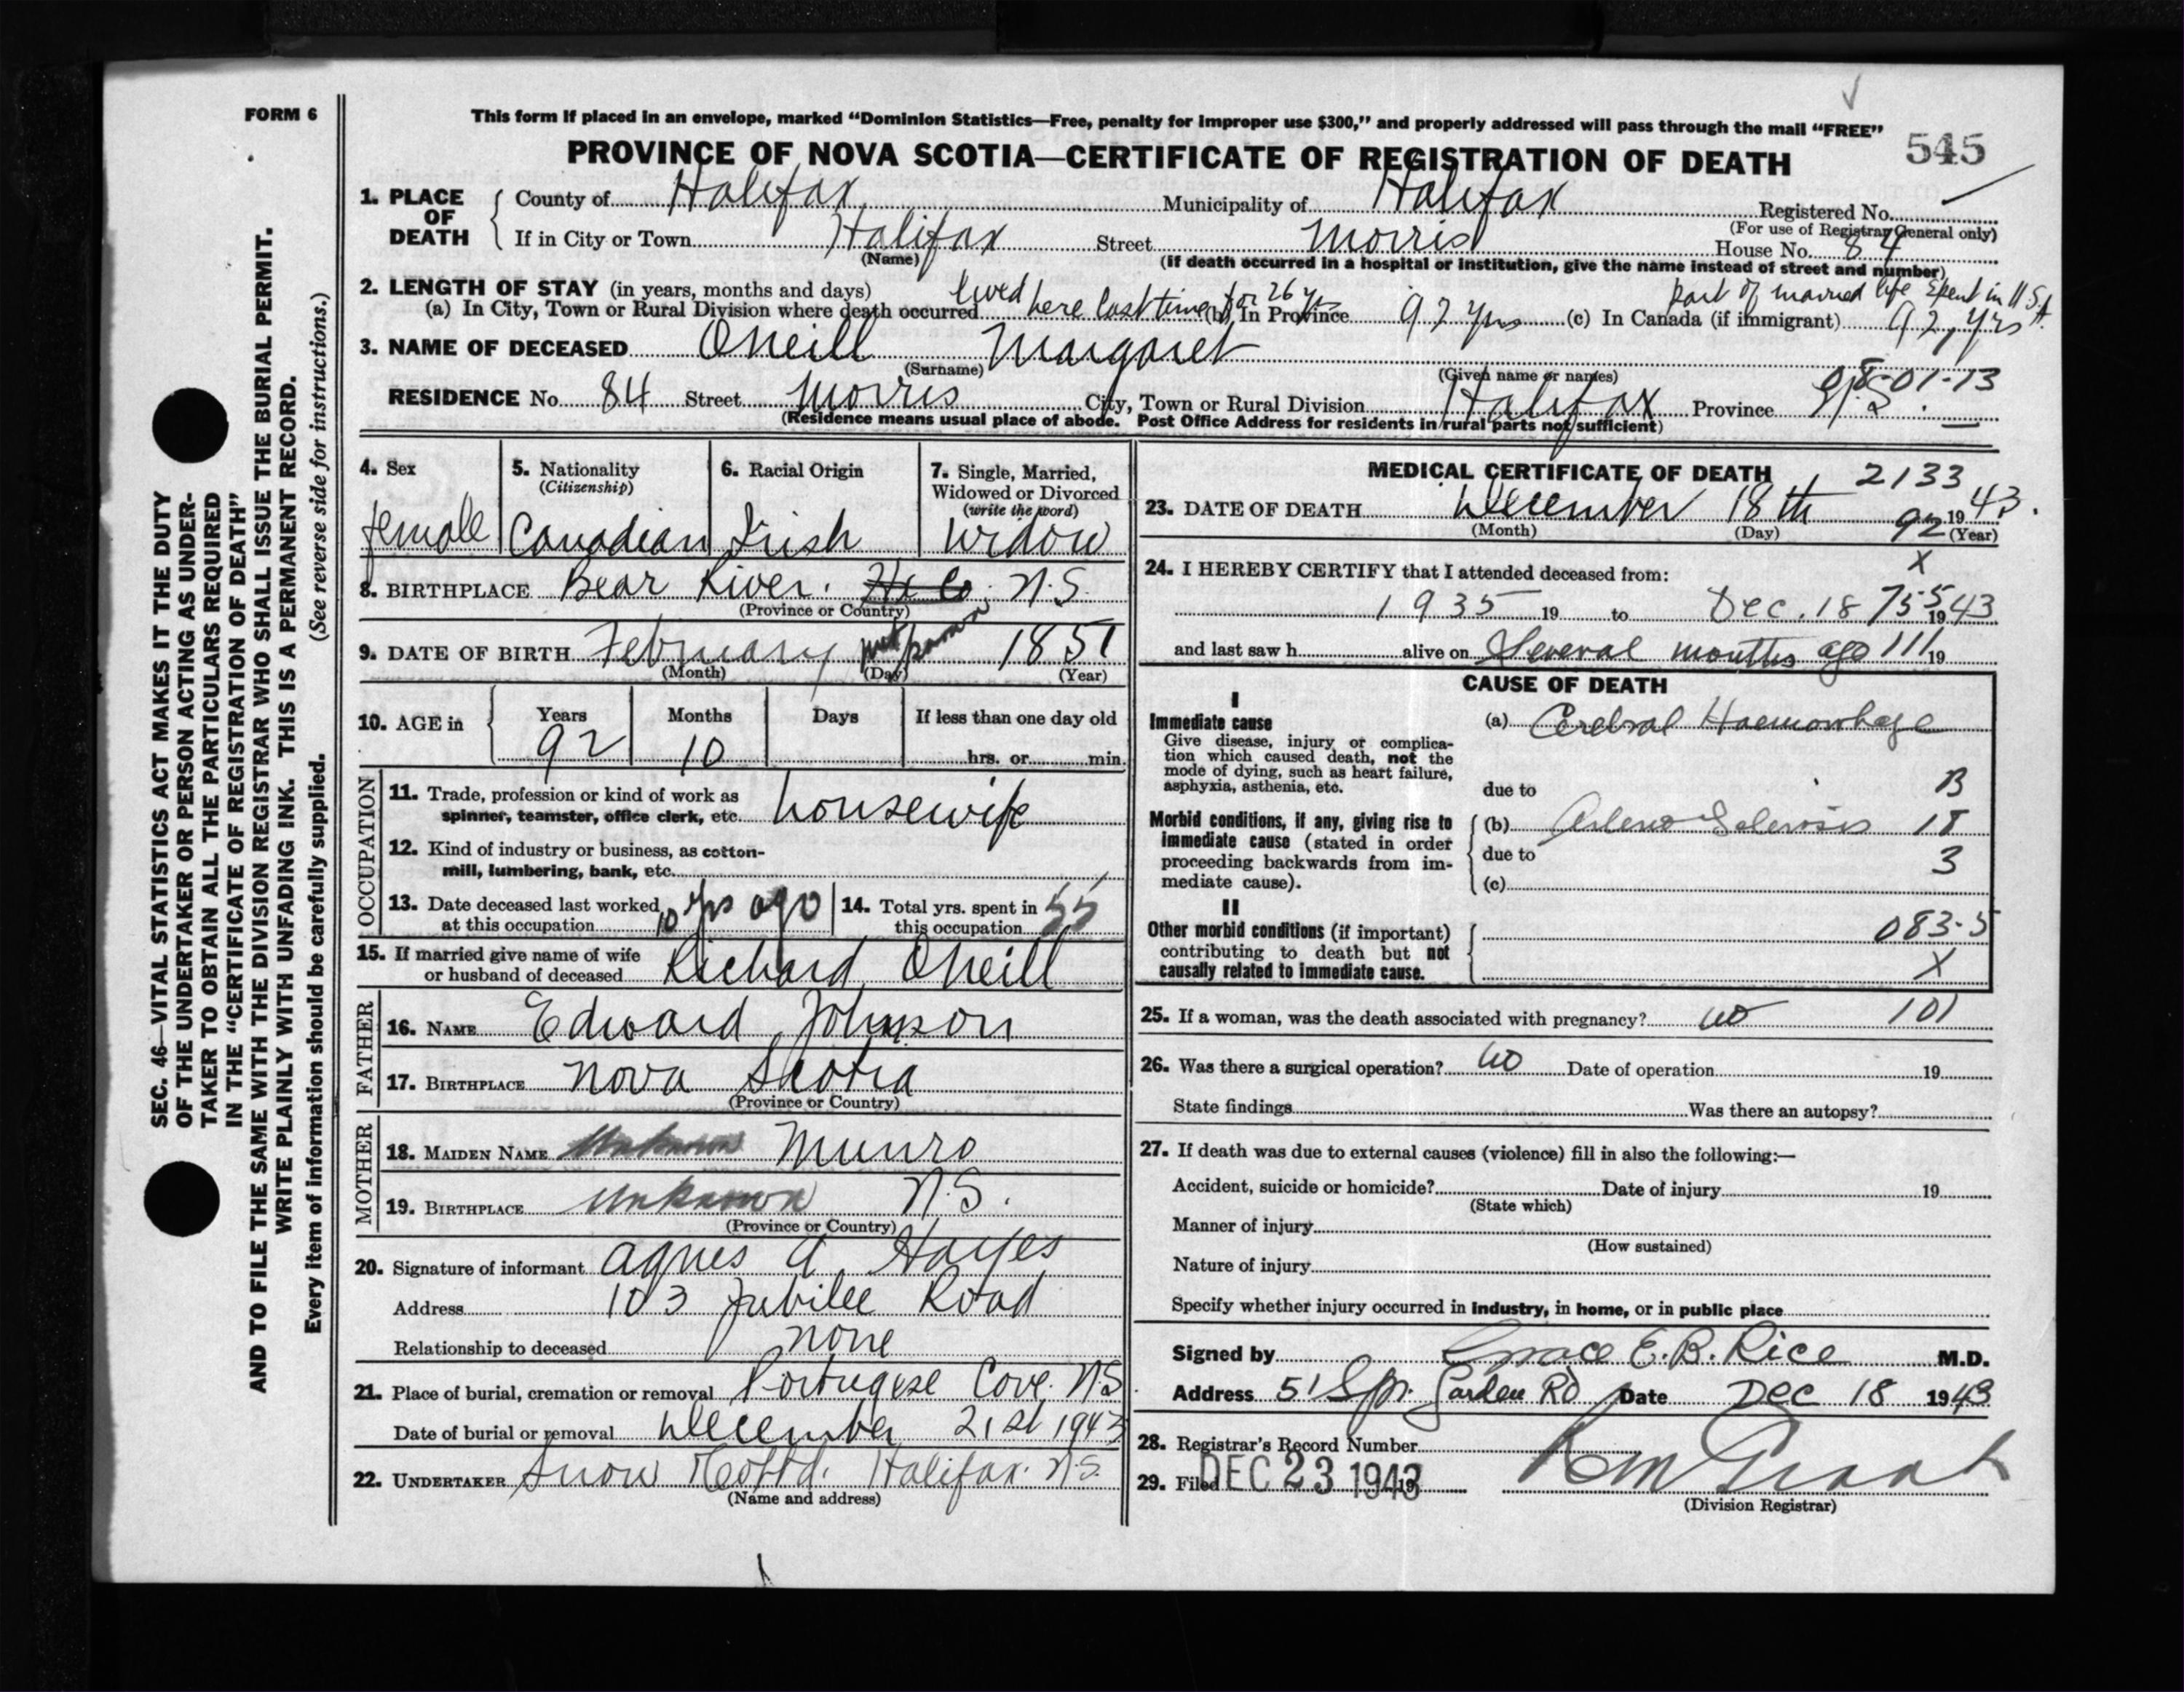 FORM 6
This form if placed in an envelope, marked "Dominion Statistics—Free, penalty for improper use $300," and properly addressed will pass through the mail "FREE"
PROVINCE OF NOVA SCOTIA—CERTIFICATE OF REGISTRATION OF DEATH 545
1. PLACE OF DEATH County of Halifax Municipality of Halifax Registered No.
(For use of Registrar General only)
If in City or Town Halifax Street Morris House No. 84
(Name) (if death occurred in a hospital or institution, give the name instead of street and number)
2. LENGTH OF STAY (in years, months and days) part of married life spent in U.S.A.
(a) In City, Town or Rural Division where death occurred lived here last time for 26 yrs (b) In Province 92 yrs (c) In Canada (if immigrant) 92, yrs
3. NAME OF DECEASED ONeill Margaret
(Surname) (Given name or names)
08-01-13
RESIDENCE No. 84 Street Morris City, Town or Rural Division Halifax Province N.S.
(Residence means usual place of abode. Post Office Address for residents in rural parts not sufficient)
4. Sex 5. Nationality (Citizenship) 6. Racial Origin 7. Single, Married, Widowed or Divorced (write the word)
female Canadian Irish Widow
8. BIRTHPLACE Bear River. Hx Co. N.S.
(Province or Country)
9. DATE OF BIRTH February not known 1851
(Month) (Day) (Year)
10. AGE in Years Months Days If less than one day old
92 10 hrs. or min.
OCCUPATION
11. Trade, profession or kind of work as spinner, teamster, office clerk, etc. housewife
12. Kind of industry or business, as cotton-mill, lumbering, bank, etc.
13. Date deceased last worked at this occupation 10 yrs ago 14. Total yrs. spent in this occupation 55
15. If married give name of wife or husband of deceased Richard ONeill
FATHER
16. NAME Edward Johnson
17. BIRTHPLACE Nova Scotia
(Province or Country)
MOTHER
18. MAIDEN NAME Unknown Munro
19. BIRTHPLACE Unknown N.S.
(Province or Country)
20. Signature of informant Agnes A Hayes
Address 103 Jubilee Road
Relationship to deceased none
21. Place of burial, cremation or removal Portugese Cove. NS.
Date of burial or removal December 21st 1943
22. UNDERTAKER Snow & Co Ltd. Halifax. N.S.
(Name and address)
MEDICAL CERTIFICATE OF DEATH 2133
23. DATE OF DEATH December 18th 1943.
(Month) (Day) (Year)
92
X
24. I HEREBY CERTIFY that I attended deceased from:
1935 19 to Dec. 18 755 1943
and last saw h alive on Several months ago 111 19
CAUSE OF DEATH
I
Immediate cause (a) Cerebral Haemorrhage
Give disease, injury or complication which caused death, not the mode of dying, such as heart failure, asphyxia, asthenia, etc.
due to B
Morbid conditions, if any, giving rise to immediate cause (stated in order proceeding backwards from immediate cause).
(b) Arterio Sclerosis 18
due to 3
(c)
II
Other morbid conditions (if important) contributing to death but not causally related to immediate cause.
083-5
X
25. If a woman, was the death associated with pregnancy? no 101
26. Was there a surgical operation? no Date of operation 19
State findings Was there an autopsy?
27. If death was due to external causes (violence) fill in also the following:—
Accident, suicide or homicide? Date of injury 19
(State which)
Manner of injury
(How sustained)
Nature of injury
Specify whether injury occurred in industry, in home, or in public place
Signed by Grace E. B. Rice M.D.
Address 51 Spr. Garden Rd Date Dec 18 1943
28. Registrar's Record Number
29. Filed DEC 23 1943 19
(Division Registrar)
SEC. 46—VITAL STATISTICS ACT MAKES IT THE DUTY
OF THE UNDERTAKER OR PERSON ACTING AS UNDER-
TAKER TO OBTAIN ALL THE PARTICULARS REQUIRED
IN THE "CERTIFICATE OF REGISTRATION OF DEATH"
AND TO FILE THE SAME WITH THE DIVISION REGISTRAR WHO SHALL ISSUE THE BURIAL PERMIT.
WRITE PLAINLY WITH UNFADING INK. THIS IS A PERMANENT RECORD.
Every item of information should be carefully supplied. (See reverse side for instructions.)